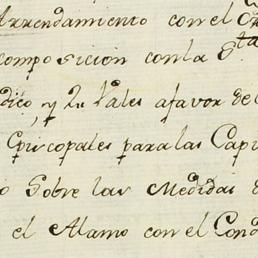 Arrendamiento con el
composicion con la S.ta
dico, y 2 Vales a favor de
Episcopales para las Cap
o Sobre las Medidas
el Alamo con el Cond